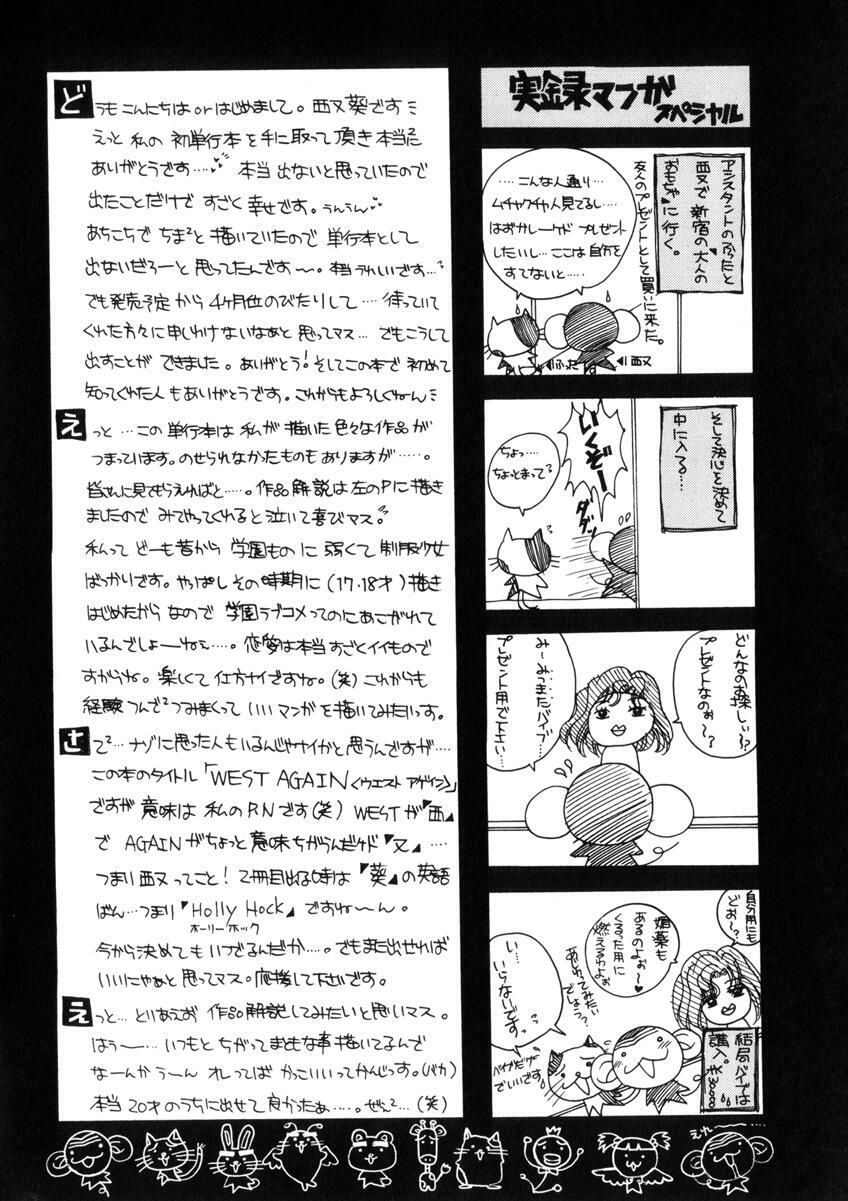 実録マンガ
スペシャル
アシスタントのぶったと
西又で新宿の大人の
おもちゃに行く。
友人のプレゼントとして買いに来た。
……こんな人通り…
ムチャクチャ人見てるし…
はずかしーケド プレゼント
したいし……ここは自分を
すてないと……
西又
そして決心を決めて
中に入る……
いくぞー
ダダッ
ちょっ……
ちょっとまって?
どんなのお探しぃ〜?
プレゼントなのぉ〜?
プレゼント用で下エい…
自分用にも
どぉ〜?
媚薬も
あるのよぉ〜♥
燃えるわよぉ
い…
いらなーです。
バイブだけ
でいいです
結局バイブは
購入。¥30000
どうもこんにちは orはじめまして。西又葵です
えっと 私の 初単行本を手に取って頂き 本当に
ありがとうです……本当 出ないと思っていたので
出たことだけで すごく 幸せです。うんうん
あちこちで ちまちまと描いていたので 単行本として
出ないだろーと 思ってたんです〜。本当うれしいです…
でも発売予定 から 4ヶ月位のびたりして……待っていて
くれた方々に申しわけないなぁと 思ってマス… でもこうして
出すことが できました。ありがとう!そしてこの本で初めて
知ってくれた人もありがとうです。これからもよろしくねーん
えっと……この 単行本は 私が 描いた色々な作品が
つまっています。のせられなかたものもありますが……。
皆さんに見てもらえればと……。作品解説は左のPに描き
ましたので みてやってくれると泣いて喜びマス。
私って どーも昔から 学園ものに 弱くて 制服少女
ばっかりです。やっぱし その時期に(17・18才)描き
はじめたから なので 学園ラブコメってのにあこがれて
いるんでしょーねぇ……。恋愛は本当すごくイイもので
すからね。楽しくて仕方ナイですね。(笑)これからも
経験つんでつみまくって いいマンガを描いてみたいっす。
さて…ナゾに思った人もいるんじゃナイかと思うんですが……
この本のタイトル「WEST AGAIN<ウエスト アゲイン>」
ですが 意味は 私のP.Nです(笑)WESTが『西』
で AGAINがちょっと意味ちがうんだケド『又』……
つまり西又ってこと!2冊目出る時は『葵』の英語
ばん…つまり『Holly Hock』ですね〜ん。
ホーリーホック
今から決めても いつでるんだか……。でもまた出せれば
いいにゃぁと 思ってマス。応援して下さいです。
えっと… とりあえず 作品解説してみたいと思いマス。
はぅ〜… いつもと ちがって まともな事描いてるんで
なーんか うーん れってば かっこいいってかんじっす。(バカ)
本当 20才のうちに出せて 良かたぁ……。ぜぇぜぇ…(笑)